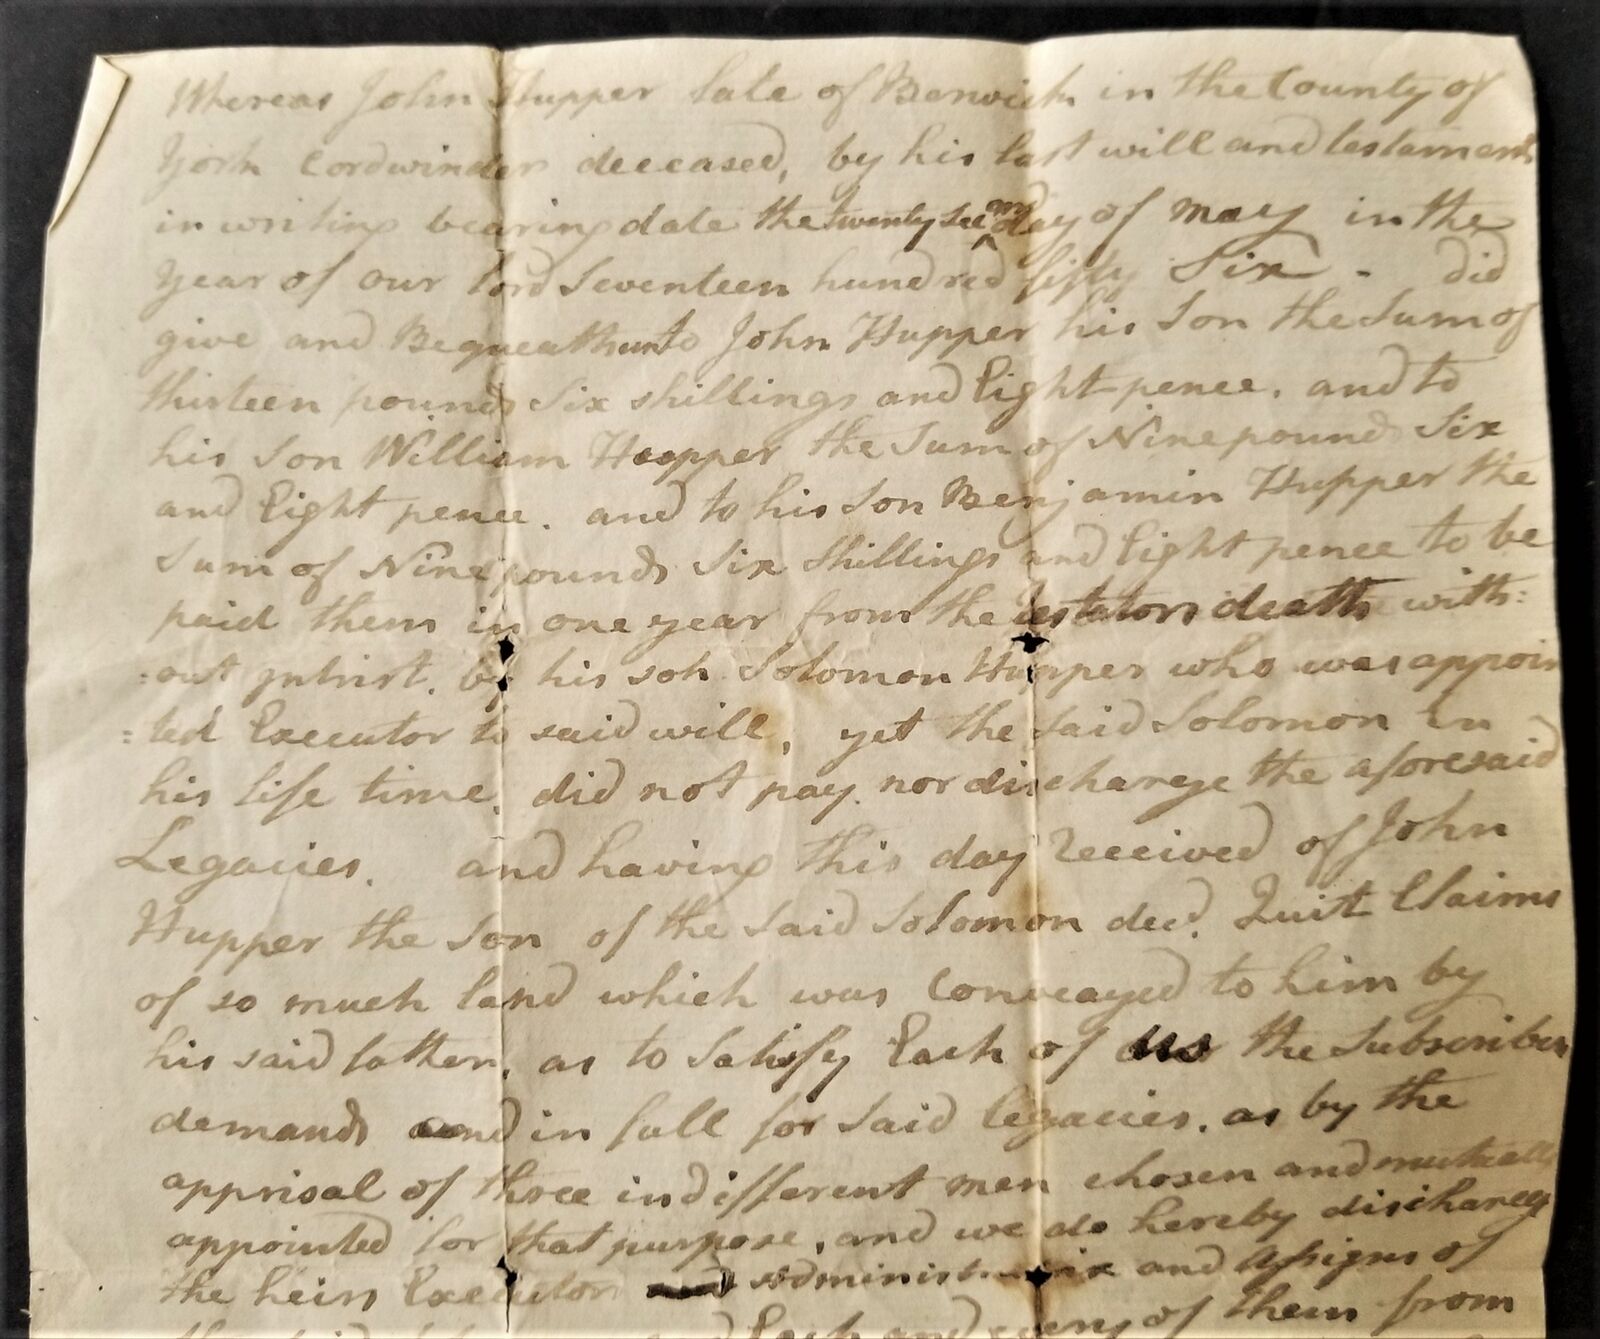 Whereas John Hupper late of Berwick in the County of
York Cordwinder deceased, by his last will and testament
in writing bearing date the twenty second day of may in the
year of our lord Seventeen hundred fifty Six - did
give and Bequeath unto John Hupper his Son the Sum of
thirteen pounds Six shillings and Eight pence. and to
his Son William Hupper the Sum of Nine pounds Six
and Eight pence. and to his Son Benjamin Hupper the
Sum of Nine pounds Six Shillings and Eight pence to be
paid them in one year from the testators death with:
:out intrist. by his son Solomon Hupper who was appoin
:ted Executor to said will, yet the said Solomon in
his life time, did not pay nor discharge the aforesaid
Legacies. and having this day Received of John
Hupper the Son of the said Solomon decd. Quit Claims
of so much land which was Conveayed to him by
his said father, as to Satisfy Each of us the Subscribers
demands and in full for said legacies. as by the
apprisal of three indifferent men chosen and mutually
appointed for that purpose, and we do hereby discharge
the heirs Executor administratrix and Assigns of
Each and every of them from